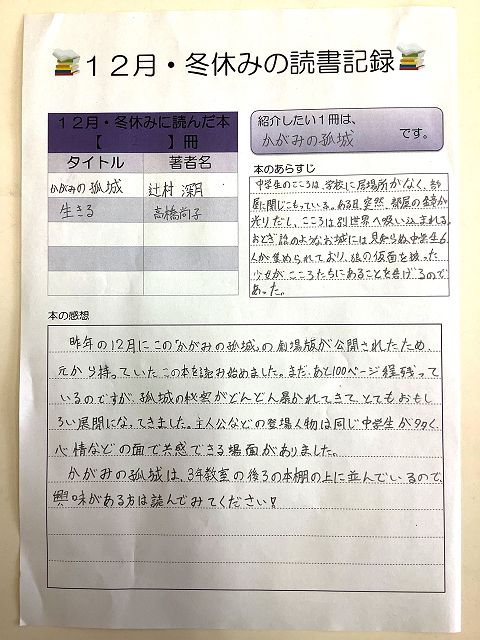 12月・冬休みの読書記録
12月・冬休みに読んだ本
【 2 】冊
タイトル 著者名
かがみの孤城 辻村 深月
生きる 高橋尚子
紹介したい1冊は、
かがみの孤城 です。
本のあらすじ
中学生のこころは、学校に居場所がなく、部
屋に閉じこもっている。ある日、突然、部屋の鏡が
光りだし、こころは別世界へ吸い込まれる。
おとぎ話のようなお城には見知らぬ中学生6
人が集められており、狼の仮面を被った
少女がこころたちにあることを告げるので
あった。
本の感想
昨年の12月にこの「かがみの孤城」の劇場版が公開されたため、
元から持っていたこの本を読み始めました。まだ、あと100ページ程残って
いるのですが、孤城の秘密がどんどん暴かれてきて、とてもおもし
ろい展開になってきました。主人公などの登場人物は同じ中学生が多く、
心情などの面で共感できる場面がありました。
かがみの孤城は、3年教室の後ろの本棚の上に並んでいるので、
興味がある方は読んでみてください!